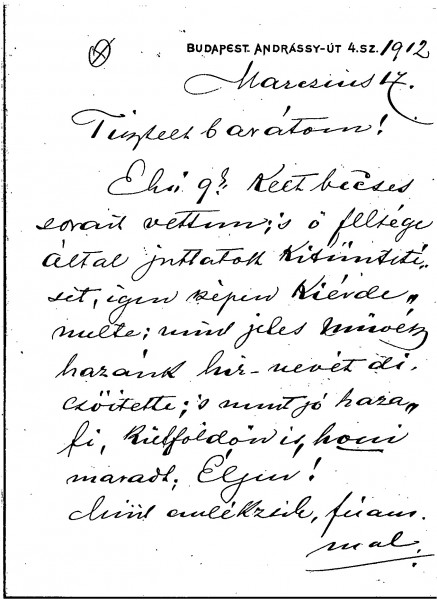 BUDAPEST. ANDRÁSSY-ÚT 4. SZ. 1912
Marczius 17.
Tisztelt barátom!
Kelt becses
sorait vettem; s ő felsége
által juttatott Kitünteté-
sét, igen szépen Kiérde„
melte; mint jeles művész
hazánk hir-nevét di-
csőitette; s mint jó haza„
fi, Külföldön is, honi
maradt. Éljen!
Mint emlékszik, fiam.
mal